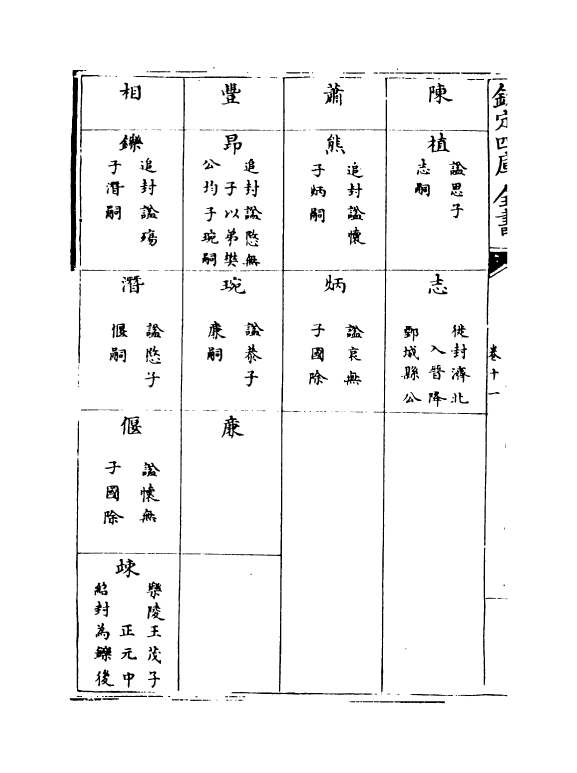 欽定四庫全書
卷十一
陳
植
諡思子
志嗣
志
徙封濟北
入晉降
鄄城縣公
蕭
熊
追封諡懷
子炳嗣
炳
諡哀無
子國除
豐
昂
追封諡愍無
子以弟樊
公均子琬嗣
琬
諡恭子
廉嗣
廉
相
鑠
追封諡殤
子潛嗣
潛
諡愍子
偃嗣
偃
諡懷無
子國除
竦
樂陵王茂子
正元中
紹封為鑠後